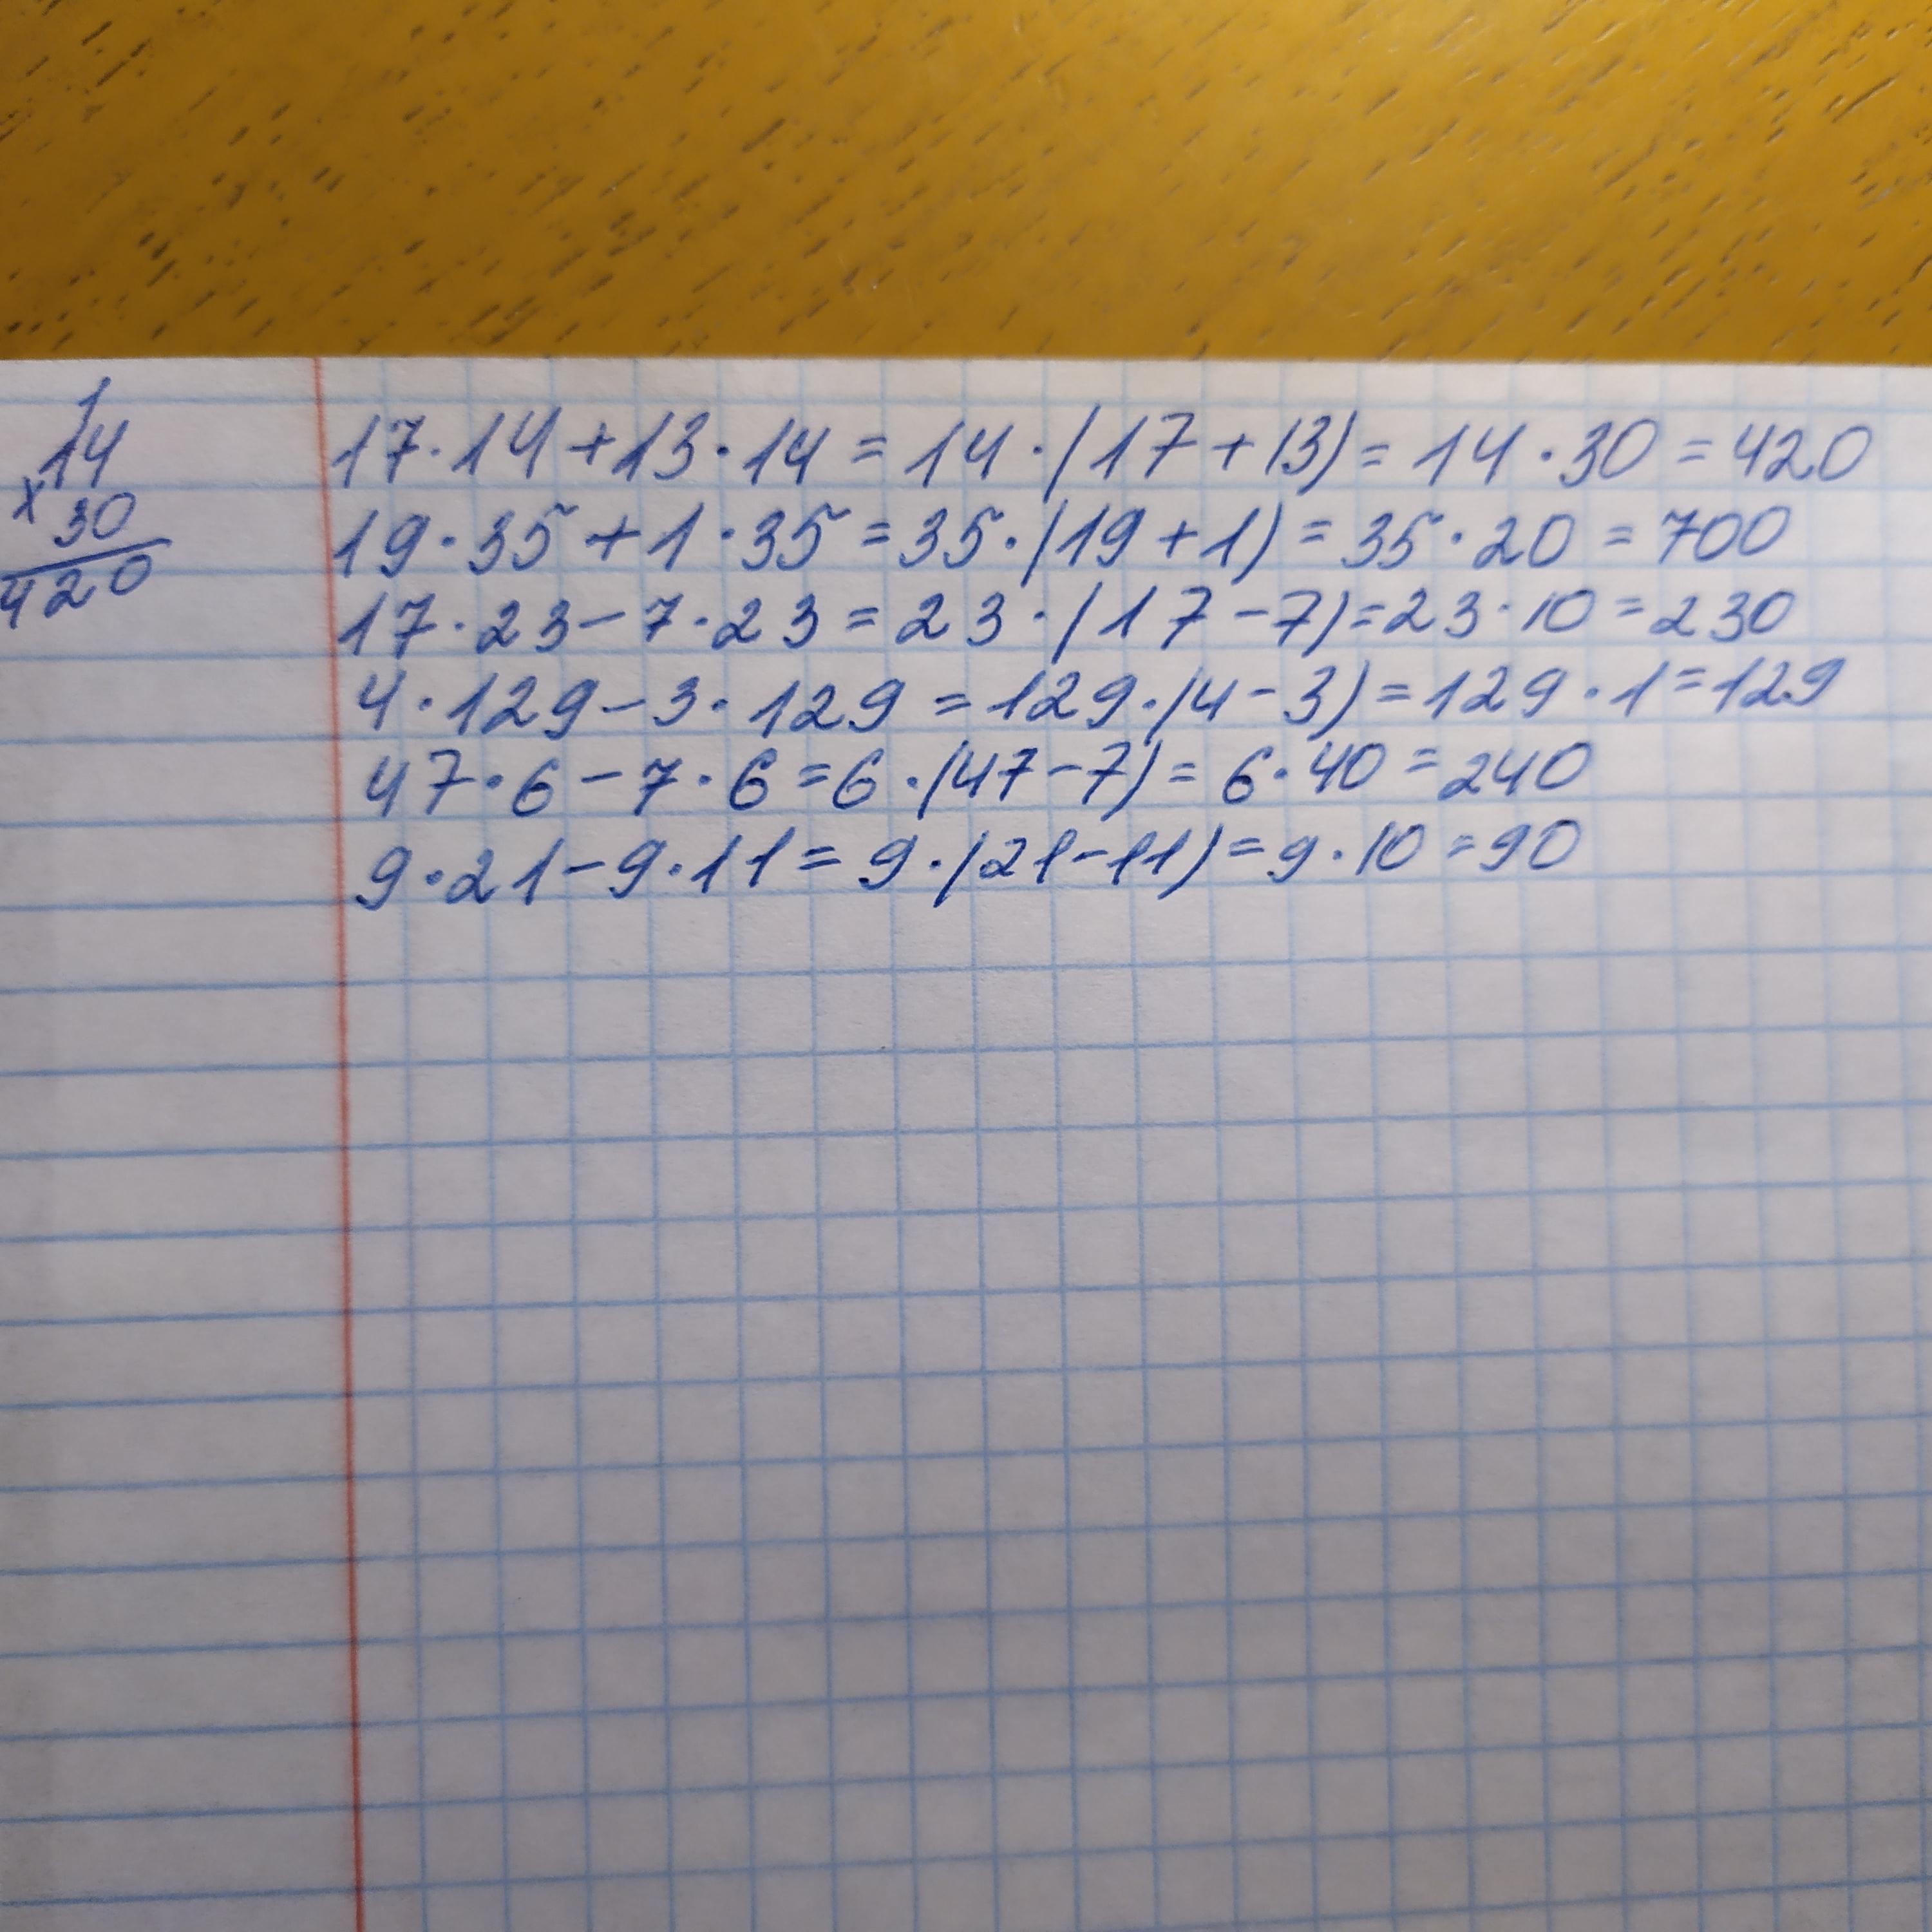 1
14
x 30
420
17·14+13·14=14·(17+13)=14·30=420
19·35+1·35=35·(19+1)=35·20=700
17·23-7·23=23·(17-7)=23·10=230
4·129-3·129=129·(4-3)=129·1=129
47·6-7·6=6·(47-7)=6·40=240
9·21-9·11=9·(21-11)=9·10=90